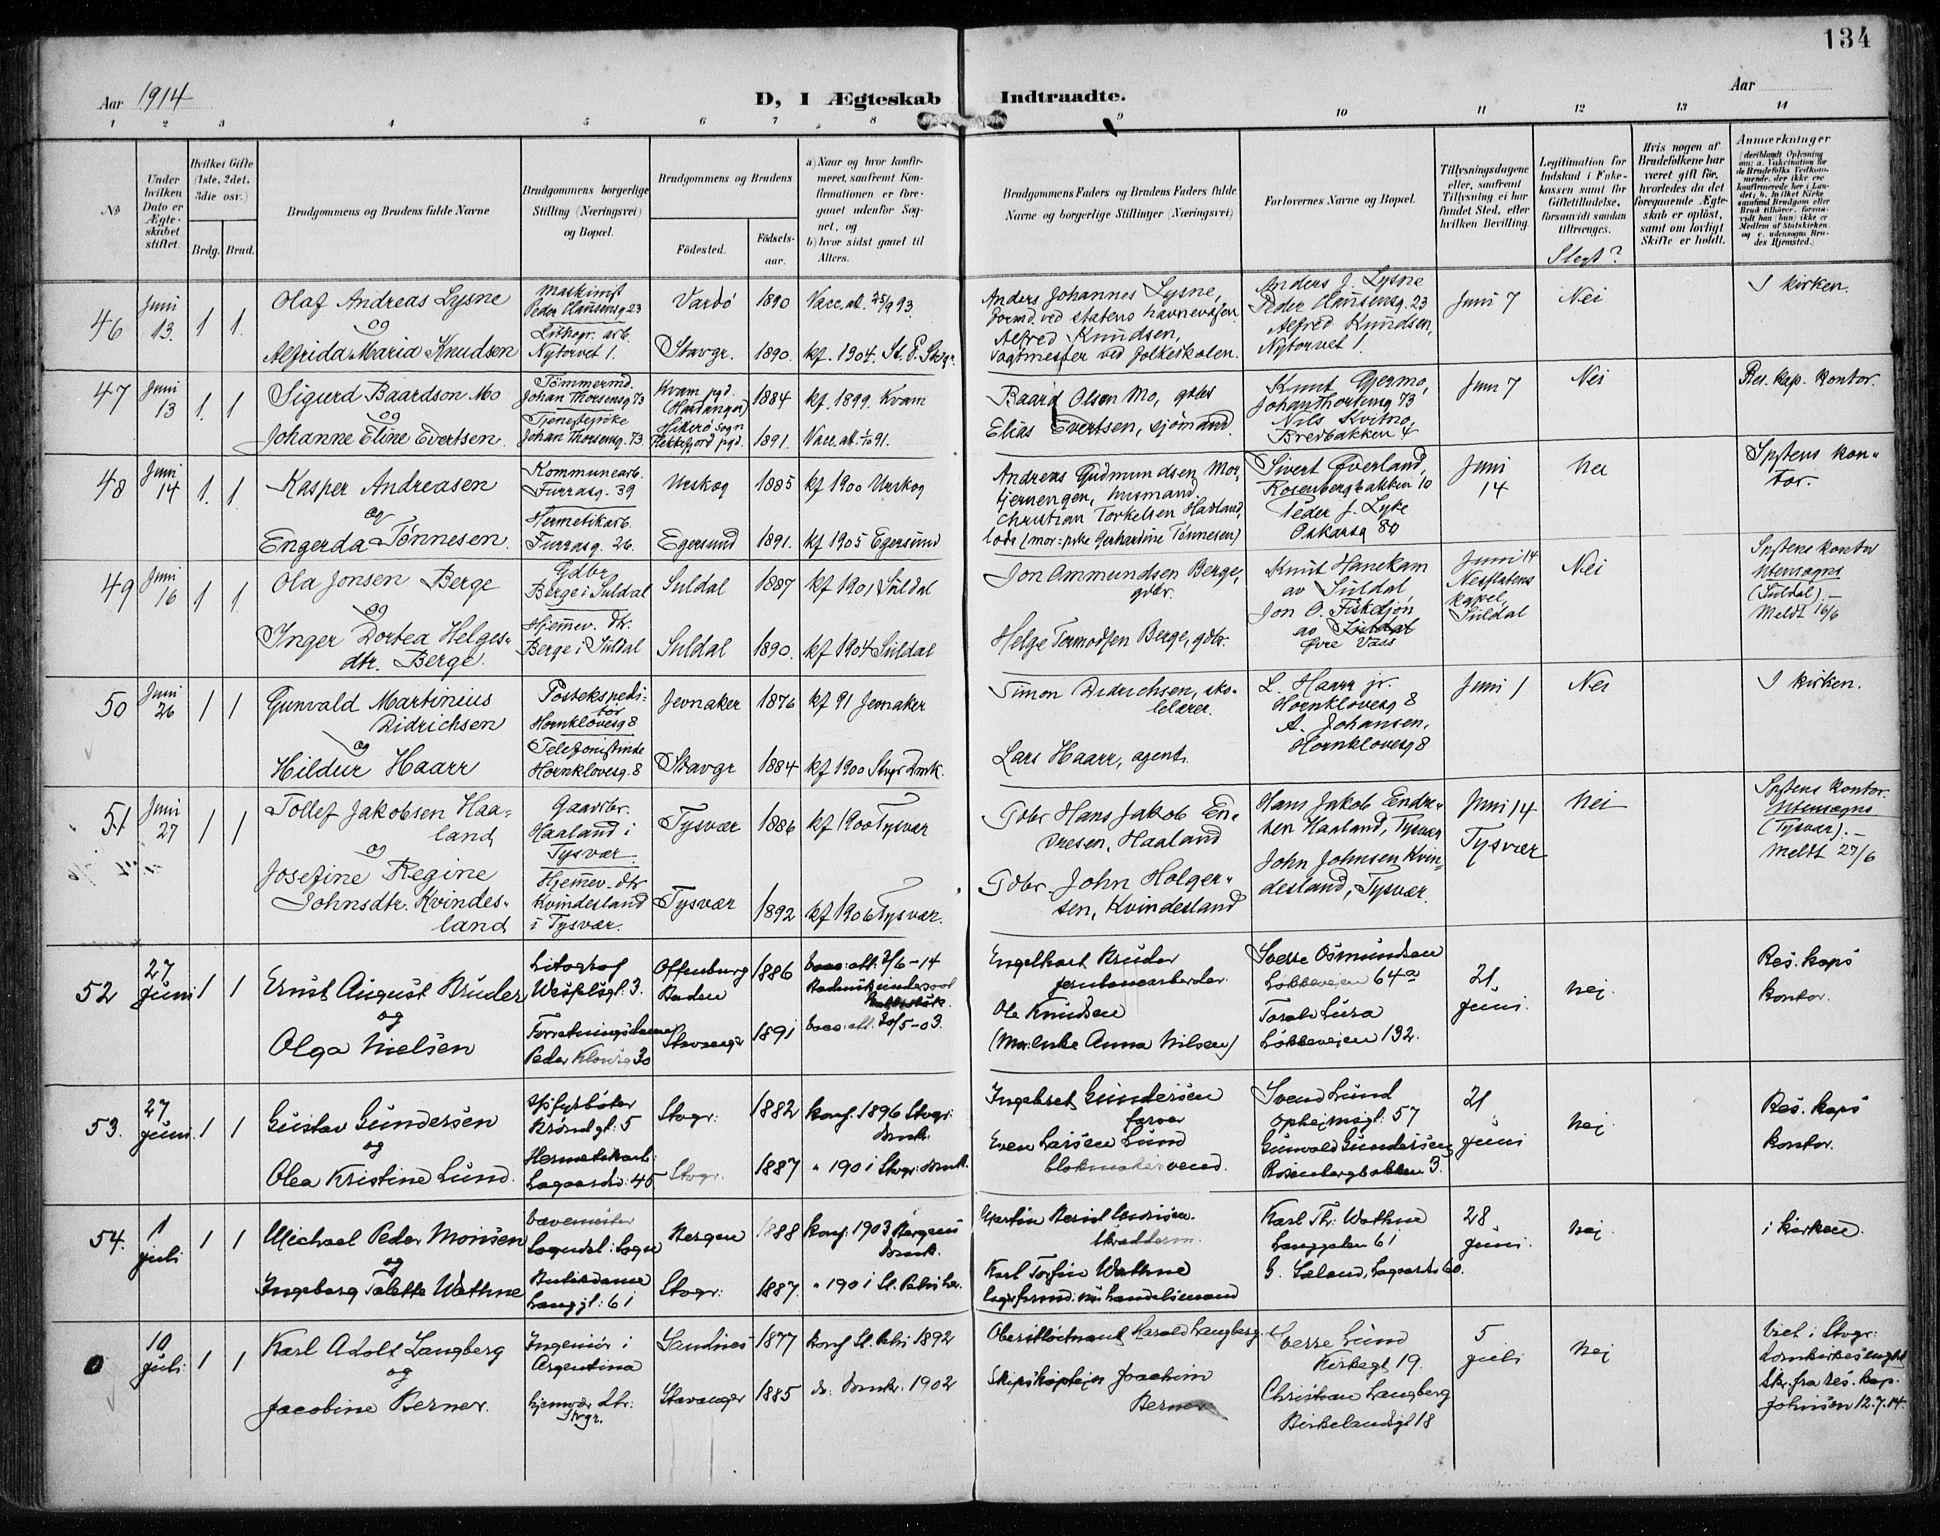 134
Aar 1914
D, I Ægteskab Indtraadte.
Aar
1 2 3 4 5 6 7 8 9 10 11 12 13 14
No
Under hvilken Dato er Ægteskabet stiftet.
Hvilket Gifte (1ste, 2det, 3die osv.)
Brdg. Brud.
Brudgommens og Brudens fulde Navne
Brudgommens borgerlige Stilling (Næringsvei) og Bopæl.
Brudgommens og Brudens
Fødested. Fødselsaar.
a) Naar og hvor konfirmeret, saafremt Konfirmationen er foregaaet udenfor Sognet, og
b) hvor sidst gaaet til Alters.
Brudgommens Faders og Brudens Faders fulde Navne og borgerlige Stillinger (Næringsvei)
Forlovernes Navne og Bopæl.
Tillysningsdagene eller, saafremt Tillysning ei har fundet Sted, efter hvilken Bevilling.
Legitimation for Indskud i Enkekassen samt for Giftetilladelse, forsaavidt saadan tiltrænges.
Slegt?
Hvis nogen af Brudefolkene har været gift før, hvorledes da det foregaaende Ægteskab er opløst, samt om lovligt Skifte er holdt.
Anmerkninger
(deriblandt Oplysning om: a. Vakcination for de Brudefolks Vedkommende, der ikke ere konfirmerede her i Landet; b. hvilket Kirkesamfund Brudgom eller Brud tilhører, forsaavidt han (hun) ikke er Medlem af Statskirken, og c. udensogns Brudes Hjemsted.)
46 Juni 13. 1 1.
Olaf Andreas Lysne
og
Alfrida Maria Knudsen
Maskinist
Peder Hansensg. 23
Lithogr. arb.
Nytorvet 1.
Vardø 1890 Vacc. at. 25/9 93.
Stavgr. 1890. kf. 1904. St. P. Stvgr.
Anders Johannes Lysne,
formd. ved statens havnevæsen
Alfred Knudsen,
vagtmester ved folkeskolen.
Anders J. Lysne
Peder Hansensg. 23
Alfred Knudsen,
Nytorvet 1.
Juni 7 Nei I kirken.
47 Juni 13 1. 1
Sigurd Baardson Mo
og
Johanne Eline Evertsen.
Tømmermd.
Johan Thorsensg. 73
Tjenestepike
Johan Thorsensg. 73
Kvam pgd.
(Hardanger) 1884 kf. 1899. Kvam
Hiterø sogn
Flekkefjord pgd. 1891. Vacc. at. 91.
Baard Olsen Mo, gdbr
Elias Evertsen, sjømand.
Knut Gjermo,
Johan Thorsensg 73
Nils Kvitno,
Bredbakken 4
Juni 7 Nei Res. kap. kontor.
48 Juni 14 1. 1
Kasper Andreasen
og
Engerda Tønnesen.
Kommunearb.
Furrasg. 39
Hermetikarb.
Furrasg. 26.
Urskog 1885 kf 1900 Urskog
Egersund 1891. kf 1905 Egersund
Andreas Gudmundsen Mortjernengen, husmand.
Christian Torkelsen Havland,
lods (mor: pike Gerhardine Tønnesen)
Sivert Øverland,
Rosenbergbakken 10
Peder J. Lyke
Oskarsg 80
Juni 14 Nei Spstens kontor.
49 Juni 16 1 1.
Ola Jonsen Berge
og
Inger Dortea Helgesdtr. Berge.
Gdbr.
Berge i Suldal
Hjemmev. dtr.
Berge i Suldal
Suldal 1887 kf 1901 Suldal
Suldal 1890. kf 1904 Suldal
Jon Ammundsen Berge,
gdbr.
Helge Tormodsen Berge, gdbr.
Knut Hanekam
av Suldal,
Jon O. Fiskekjøn
av Suldal
Øvre Vats
Juni 14
Nesflatens
kapel,
Suldal
Nei
Spstens kontor
Utensogns
(Suldal).-
Meldt 16/6
50 Juni 26 1 1
Gunvald Martinius
Didrichsen
og
Hildur Haarr
Postekspeditør
Hornkløvesg 8
Telefonistinde
Hornklovesg. 8
Jevnaker 1876 kf 91 Jevnaker
Stavgr 1884 kf 1900 Stvgr. Dmk.
Simon Didrichsen, skolelærer.
Lars Haarr, agent.
L. Haarr jr.
Hornklovesg 8
A. Johansen,
Hornklovesg 8
Juni 1 Nei I kirken.
51 Juni 27 1 1
Tollef Jakobsen Haaland
og
Josefine Regine
Johnsdtr. Kvindesland
Gaardbr.
Haaland i
Tysvær.
Hjemmev. dtr
Kvindesland
i Tysvær.
Tysvær 1886 kf 1900 Tysvær
Tysvær 1892 kf 1906 Tysvær.
Gdbr Hans Jakob Endresen, Haaland
Gdbr. John Holgersen, Kvindesland
Hans Jakob Endresen Haaland, Tysvær
John Johnsen Kvindesland, Tysvær.
Juni 14
Tysvær
Nei
Spstens kontor.
Utensogns
(Tysvær).-
Meldt 27/6
52 27 Juni 1 1
Ernst August Bruder
og
Olga Nielsen
Litograf
Wesselsgt. 3.
Forretningsdame
Peder Klowsg 30
Offenburg
Baden 1886 vacc: att: 2/6-14
Stavanger 1891 vacc: att. 20/5-03.
Engelhart Bruder
jernbanearbeider
Ole Knudsen
(Mor: enke Anna Nilsen)
Sverre Osmundsen
Løkkeveien 64a
Torale Lura
Løkkeveien 132.
21 Juni. nej. Res. kaps kontor.
53. 27 Juni 1 1
Gustav Gundersen
og
Olea Kristine Lund.
Spfyrbøter
Brøndgt: 5
Hermetikarb:
Lagaardsv: 45
Stvgr: 1882 konf. 1896 Stvgr: Domk.
Stvgr. 1887 " 1901 Stvgr: Domk.
Ingebret Gundersen
farver
Even Larsen Lund
blokmakersvend.
Svend Lund
Ophejmsgt. 57
Gunvald Gundersen
Rosenbergbakken 3.
21 Juni nej. Res. kaps kontor.
54. 1 juli 1 1
Michael Peder Monsen
og
Ingeborg Talette Wathne
Vævemester
Sogndal: Sogn
Butikdame
Langgt: 61
Bergen 1888 konf. 1903 Bergens Domk.
Stvgr: 1887. " 1901 St. Petri
Karl Torfin Wathne
Karl Th: Wathne
Langgaten 61
G. Sæland, Lagaardsv 60.
28 Juni. nej. i kirken.
0 10 juli: 1 1
Karl Adolf Langberg
og
Jacobine Berner.
Ingeniør i
Argentina
hjemvær. dtr:
Stvgr.
Sandnes 1877 konf. St. Petri 1892
Stavanger 1885 do: Domk: 1902
Oberstløitnant Harald Langberg
Skipskaptejn Joachim
Berner
Sverre Lund
Kirkegt 19.
Christian Langberg
Birkelandsgt 18
5 juli nej
Viet i Stvgr:
Domkirkesogn
Skr. fra res. kap.
Johnsen 12.7.14.